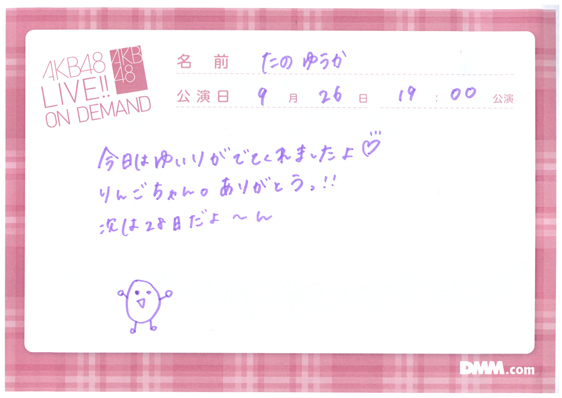 AKB48
LIVE!!
ON DEMAND
AKB
48
名前 たの ゆうか
公演日 9月26日 19:00公演
今日はゆいりがでてくれましたよ♡
りんごちゃん。ありがとうっ!!
次は28日だよ〜ん
DMM.com